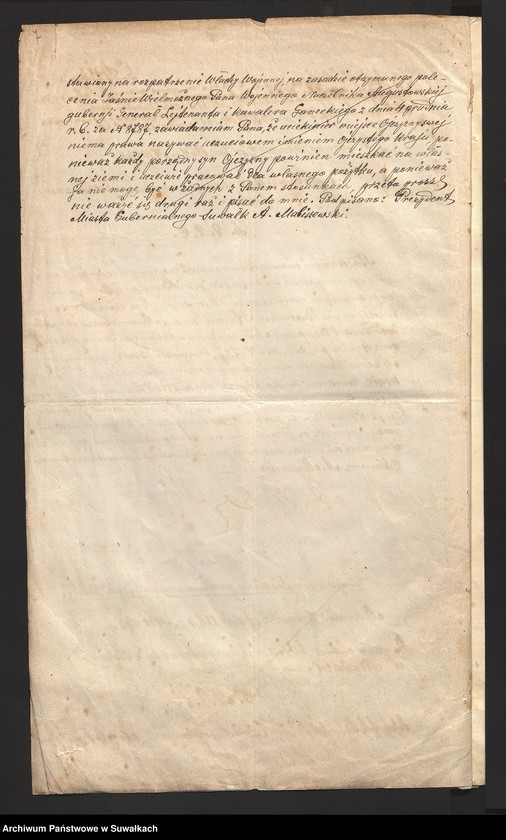 7
stawiony na rozpatrzenie Władzy Wojennej, na zasadzie otrzymanego pole-
cenia Jaśnie Wielmożnego Pana Wojennego Naczelnika Augustowskiej
gubernji Jenerał Lejtenanta i kawalera Ganeckiego z dnia 4 grudnia
r. b. za № 8287, zawiadamiam Pana, że uciekinier miejsc Ojczynych
niema prawa nazywać uczuciowem imieniem Ojczystego Kraju, po-
nieważ każdy porządny syn Ojczyzny powinien mieszkać na włas-
nej ziemi i uczciwie pracować dla własnego pożytku, a ponieważ
ja nie mogę być w żadnych z Panem stosunkach, przeto proszę
nie ważyć się drugi raz i pisać do mnie. Podpisano: Prezydent
Miasta Gubernialnego Suwałk A. Matiszewski.
Archiwum Państwowe w Suwałkach